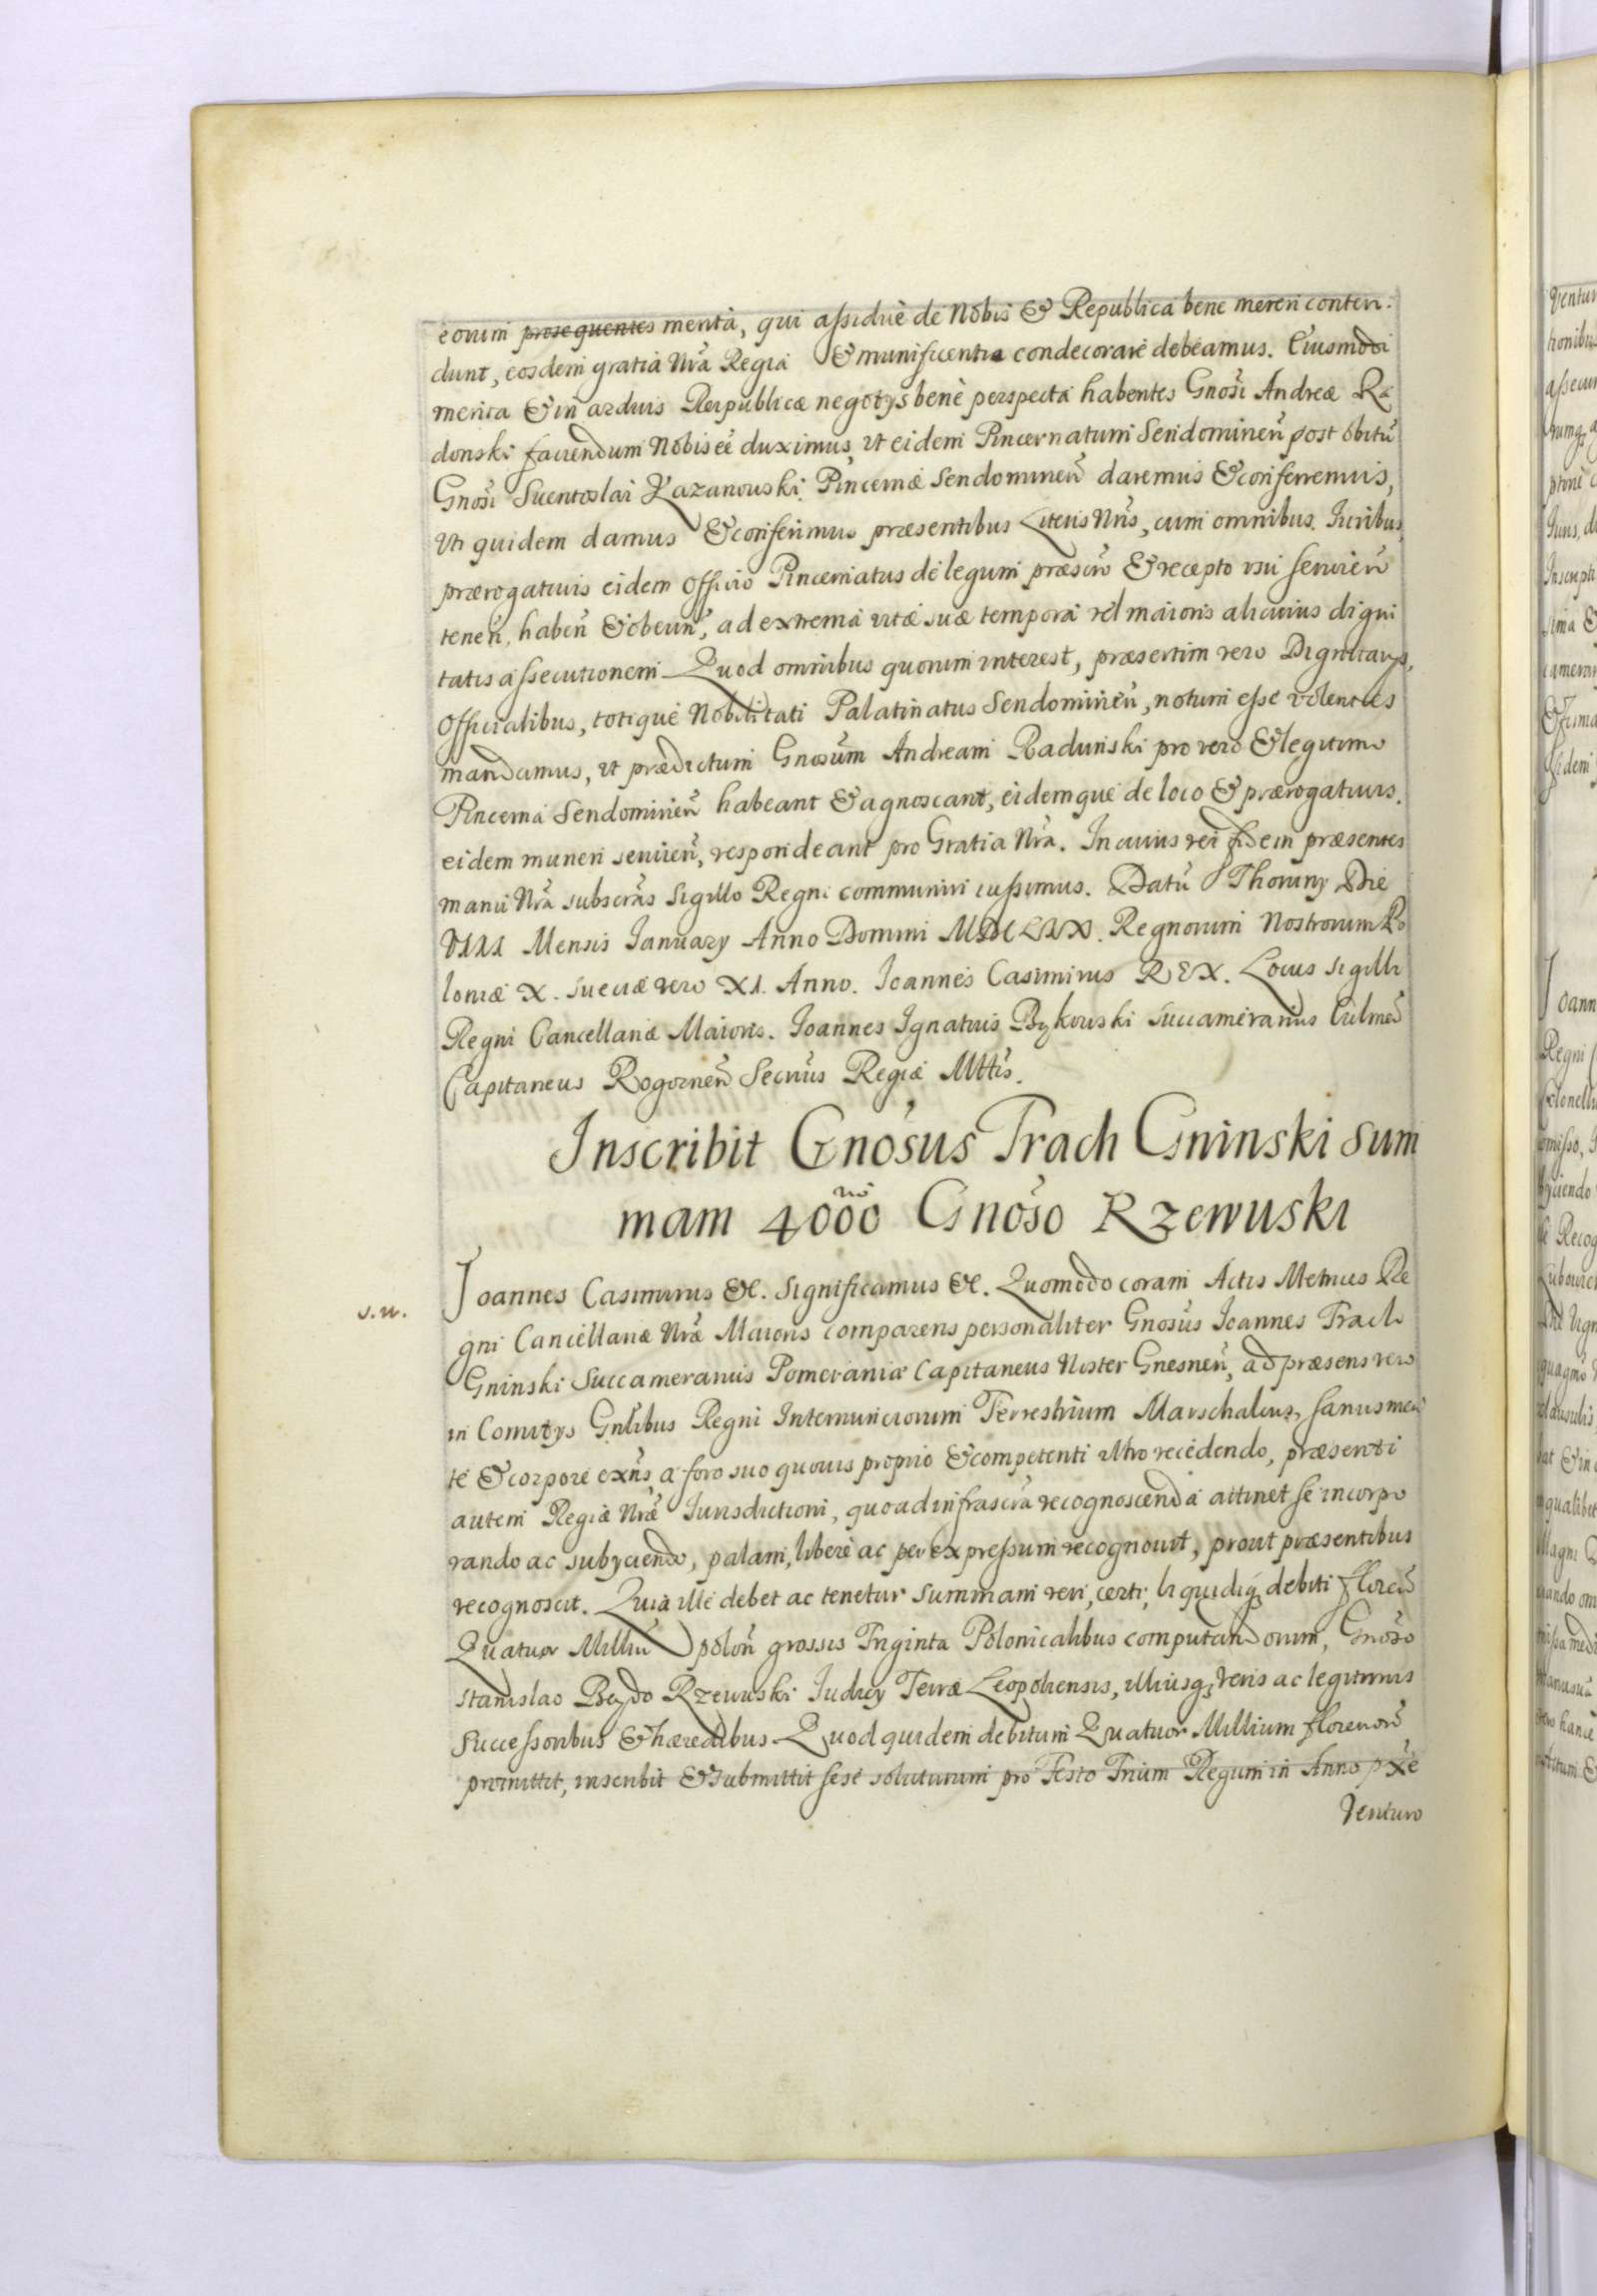 eorum prosequentes merita, qui assiduè de Nobis & Republica bene mereri conten-
dunt, eosdem gratia Nrã Regia & munificentia condecorare debeamus. Eiusmodi
merita & in arduis Reipublicæ negotijs bene perspecta habentes Gnosi Andreæ Ra
donski faciendum Nobis eẽ duximus, ut eidem Pincernatum Sendomireñ post obitũ
Gnosi Suentoslai Kazanowski Pincernæ Sendomireñ daremus & conferremus,
Uti quidem damus & conferimus præsentibus Literis Nris, cum omnibus Iuribus,
prærogativis eidem officio Pincernatus de legum præscrõ & recepto usu servieñ
teneñ, habeñ & obeuñ, ad extrema vitæ suæ tempora vel maioris alicuius digni
tatis assecutionem. Quod omnibus quorum interest, præsertim vero Dignitarijs,
Officialibus, totique Nobilitati Palatinatus Sendomireñ, notum esse volentes
mandamus, ut prædictum Gnosum Andream Radunski pro vero & legitimo
Pincerna Sendomireñ habeant & agnoscant, eidemque de loco & prærogativis
eidem muneri servieñ, respondeant pro Gratia Nrã. In cuius rei fidem præsentes
manu Nrã subscrãs Sigillo Regni communiri iussimus. Datũ Thoruny Die
VIII Mensis January Anno Domini MDCLIX. Regnorum Nostrorum Po
loniæ X. Sueciæ vero XI. Anno. Ioannes Casimirus REX. Locus sigilli
Regni Cancellariæ Maioris. Ioannes Ignatius Bykowski Succamerarius Culmeñ
Capitaneus Rogozneñ Secrius Regiæ Mttis.
Inscribit Gnosus Trach Gninski Sum
mam 4000 Gnoso Rzewuski
s.n. Joannes Casimirus &c. Significamus &c. Quomodo coram Actis Metrices Re
gni Cancellariæ Nræ Maioris comparens personaliter Gnosus Ioannes Trach
Gninski Succamerarius Pomeraniæ Capitaneus Noster Gnesneñ, ad præsens vero
in Comitijs Gnlibus Regni Internunciorum Terrestrium Marschalcus, sanus men
te & corpore exñs a foro suo quovis proprio & competenti ultro recedendo, præsenti
autem Regiæ Nræ Iurisdictioni, quo ad infrascrã recognoscenda attinet se incorpo
rando ac subijciendo, palam, libere ac per expressum recognovit, prout præsentibus
recognoscit. Quia ille debet ac tenetur summam veri, certi, liquidiq; debiti floreñ
Quatuor Milliũ poloñ grossis Triginta Polonicalibus computandorum, Gnoso
Stanislao Beydo Rzewuski Iudicy Terræ Leopoliensis, illiusq; veris ac legitimis
Successoribus & hæredibus. Quod quidem debitum Quatuor Millium florenorũ
promittit, inscribit & submittit sese soluturum pro Festo Trium Regum in Anno pxe
Venturo